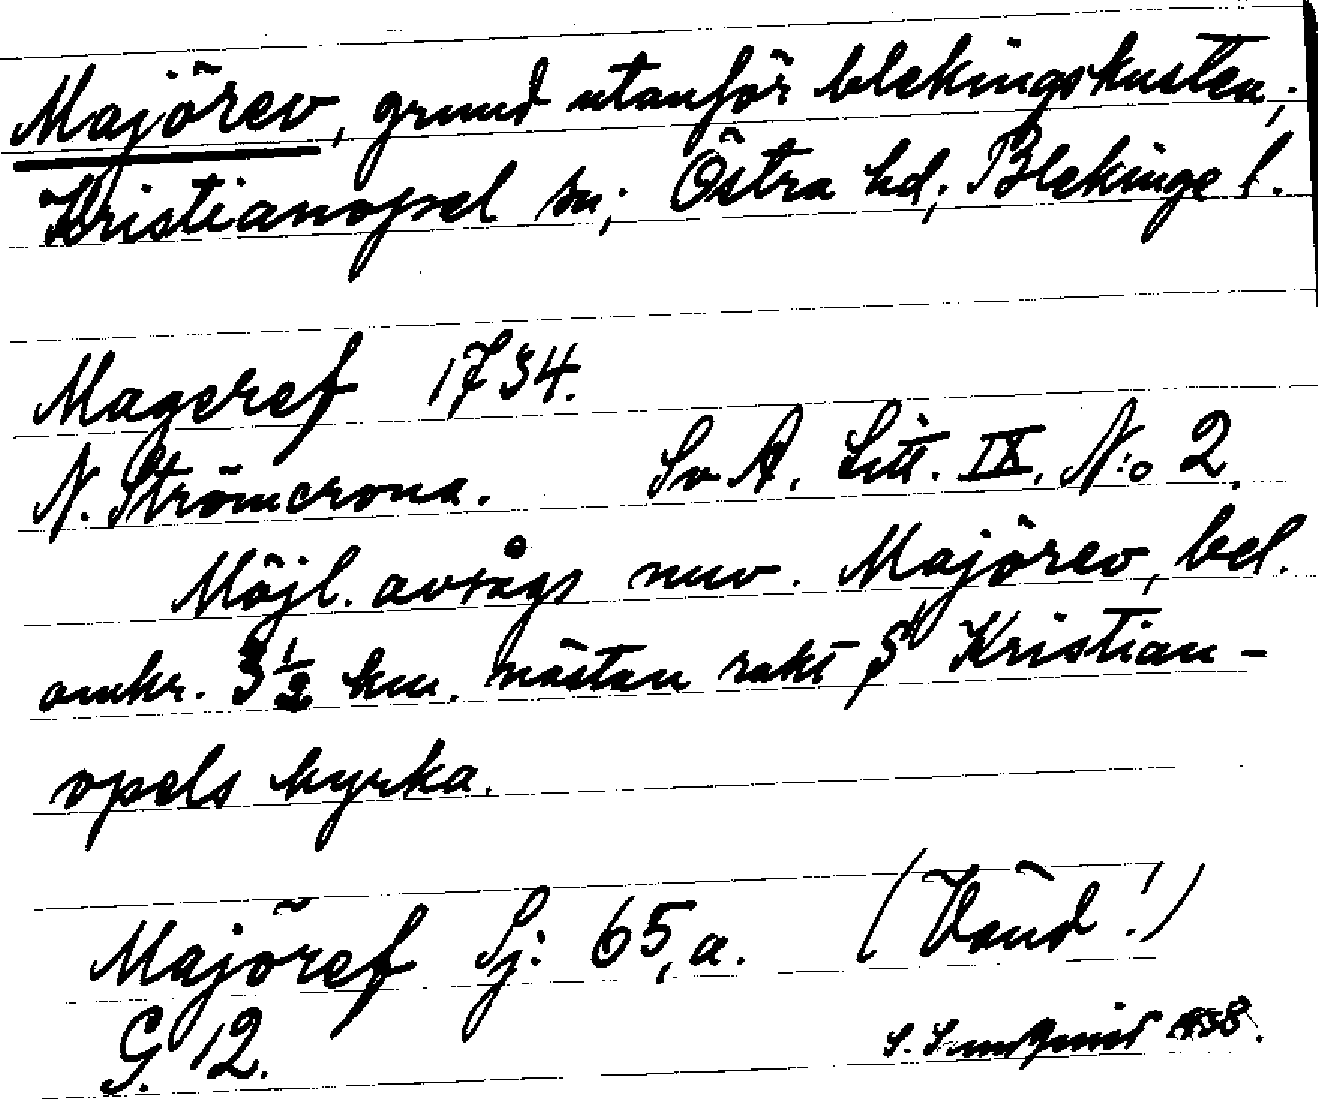 Majörev, grund utanför blekingskusten;
Kristianopel sn; Östra hd; Blekinge l.
Mageref 1734.
N. Strömcrona. Sv A. Litt. IX. N:o 2.
Möjl. avsågs nuv. Majörev, bel.
omkr. 3 1/2 km. nästan rakt S Kristian-
opels kyrka.
Majöref Sj: 65, a. (Vänd!)
G. 12.
S. Sundquist 1938.